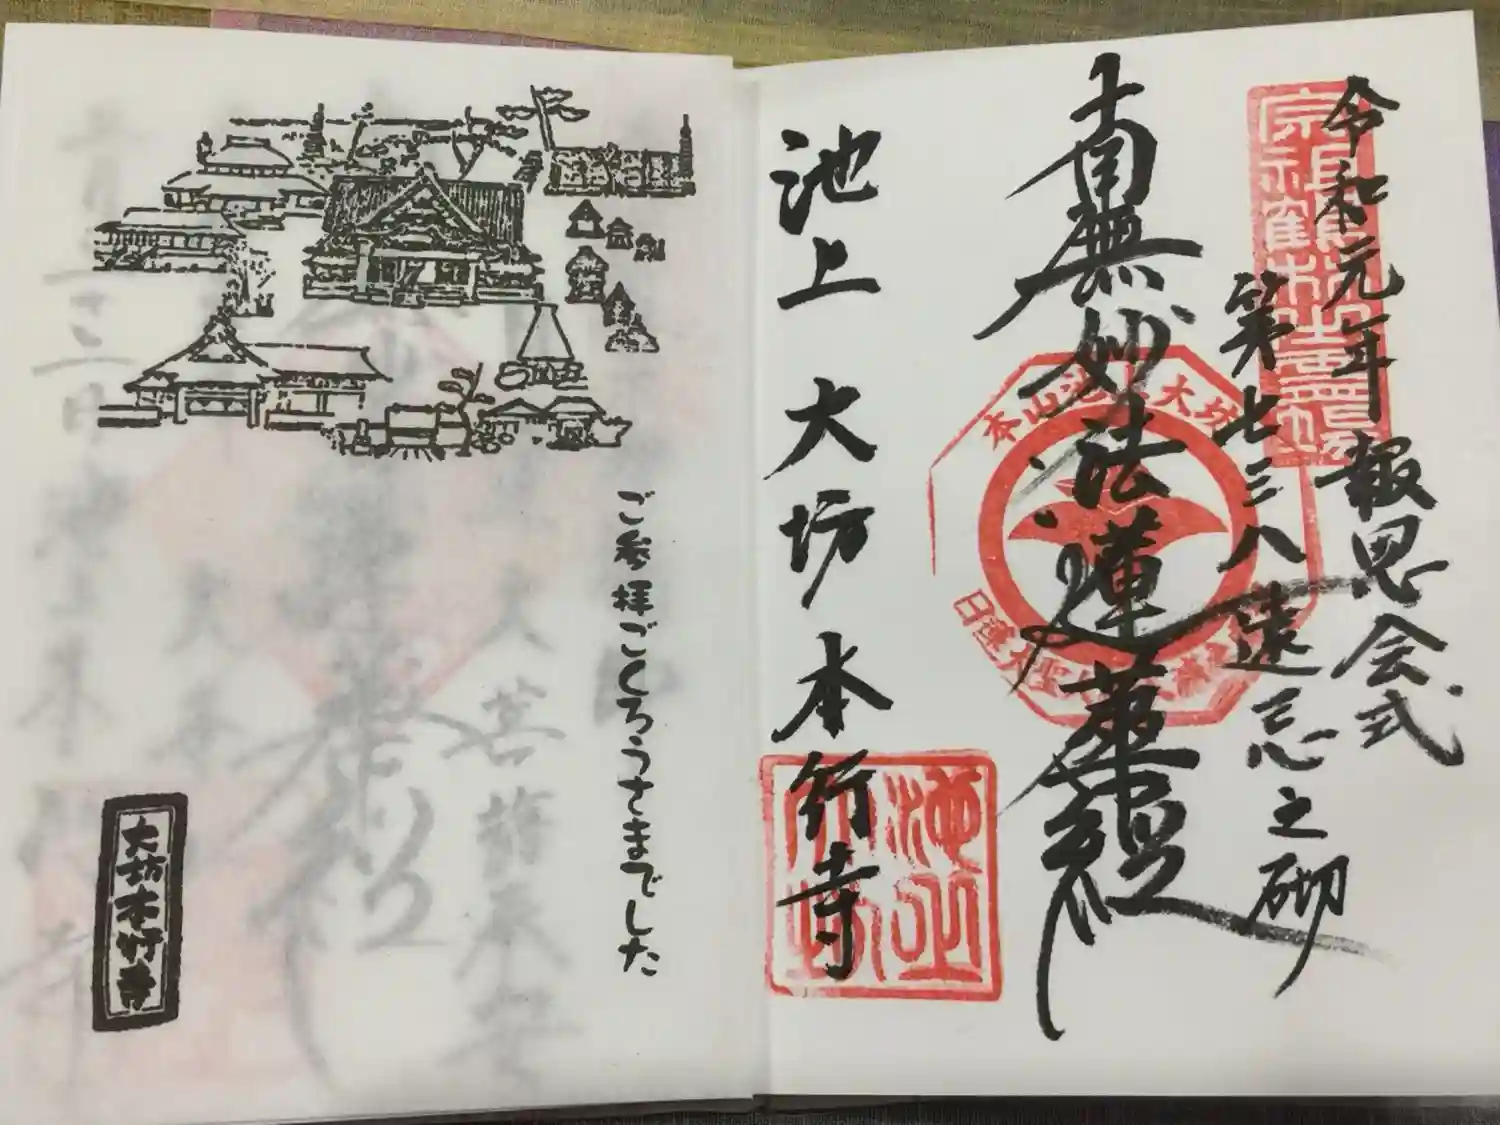 令和元年 報恩会式
第七三八遠忌之砌
南無妙法蓮華経
池上 大坊 本行寺
本山池上大坊
日蓮大聖人
池上
大坊
ご参拝ごくろうさまでした
大坊本行寺